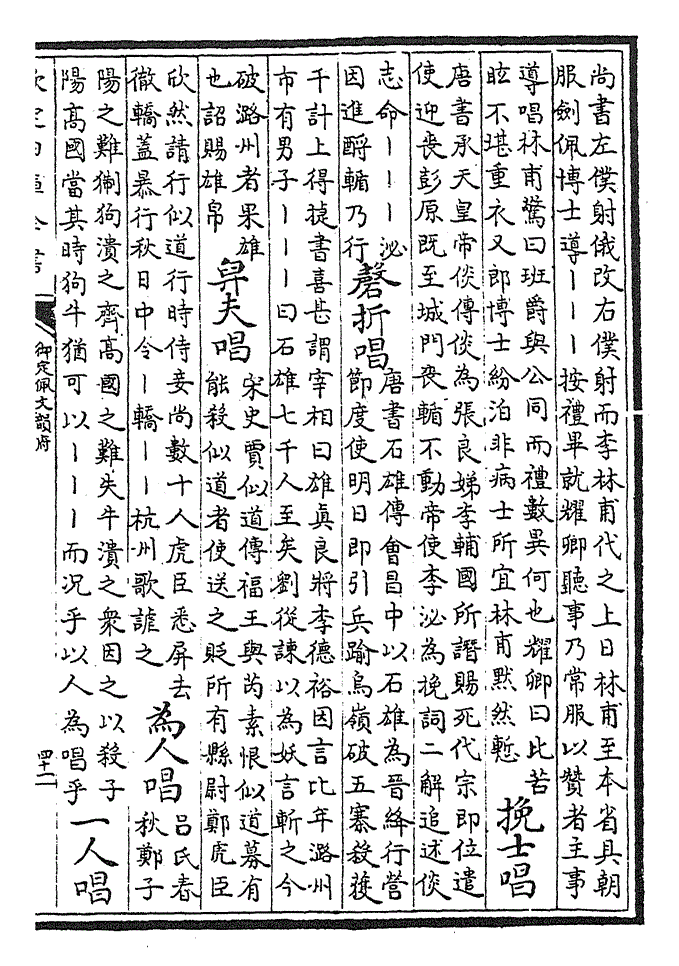 尚書左僕射俄改右僕射而李林甫代之上日林甫至本省具朝
服劍佩博士導丨丨丨按禮畢就耀卿聽事乃常服以贊者主事
導唱林甫驚曰班爵與公同而禮數異何也耀卿曰比苦
眩不堪重衣又郎博士紛泊非病士所宜林甫默然慙
挽士唱
唐書承天皇帝倓傳倓為張良娣李輔國所譖賜死代宗即位遣
使迎喪彭原既至城門喪輴不動帝使李泌為挽詞二解追述倓
志命丨丨丨泌
因進酹輴乃行
磬折唱
唐書石雄傳會昌中以石雄為晉絳行營
節度使明日即引兵踰烏嶺破五寨殺獲
千計上得捷書喜甚謂宰相曰雄真良將李德裕因言比年潞州
市有男子丨丨丨曰石雄七千人至矣劉從諫以為妖言斬之今
破潞州者果雄
也詔賜雄帛
舁夫唱
宋史賈似道傳福王與芮素恨似道募有
能殺似道者使送之貶所有縣尉鄭虎臣
欣然請行似道行時侍妾尚數十人虎臣悉屏去
徹轎蓋暴行秋日中令丨轎丨丨杭州歌謔之
為人唱
呂氏春
秋鄭子
陽之難猘狗潰之齊高國之難失牛潰之衆因之以殺子
陽高國當其時狗牛猶可以丨丨丨而况乎以人為唱乎
一人唱
欽定四庫全書
御定佩文韻府
四十二